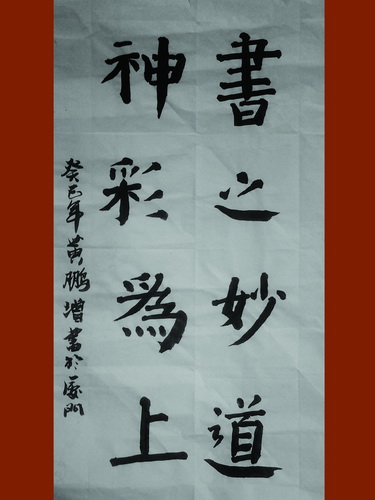 書之妙道
神彩為上
癸巳年黄鵬增書於厦門